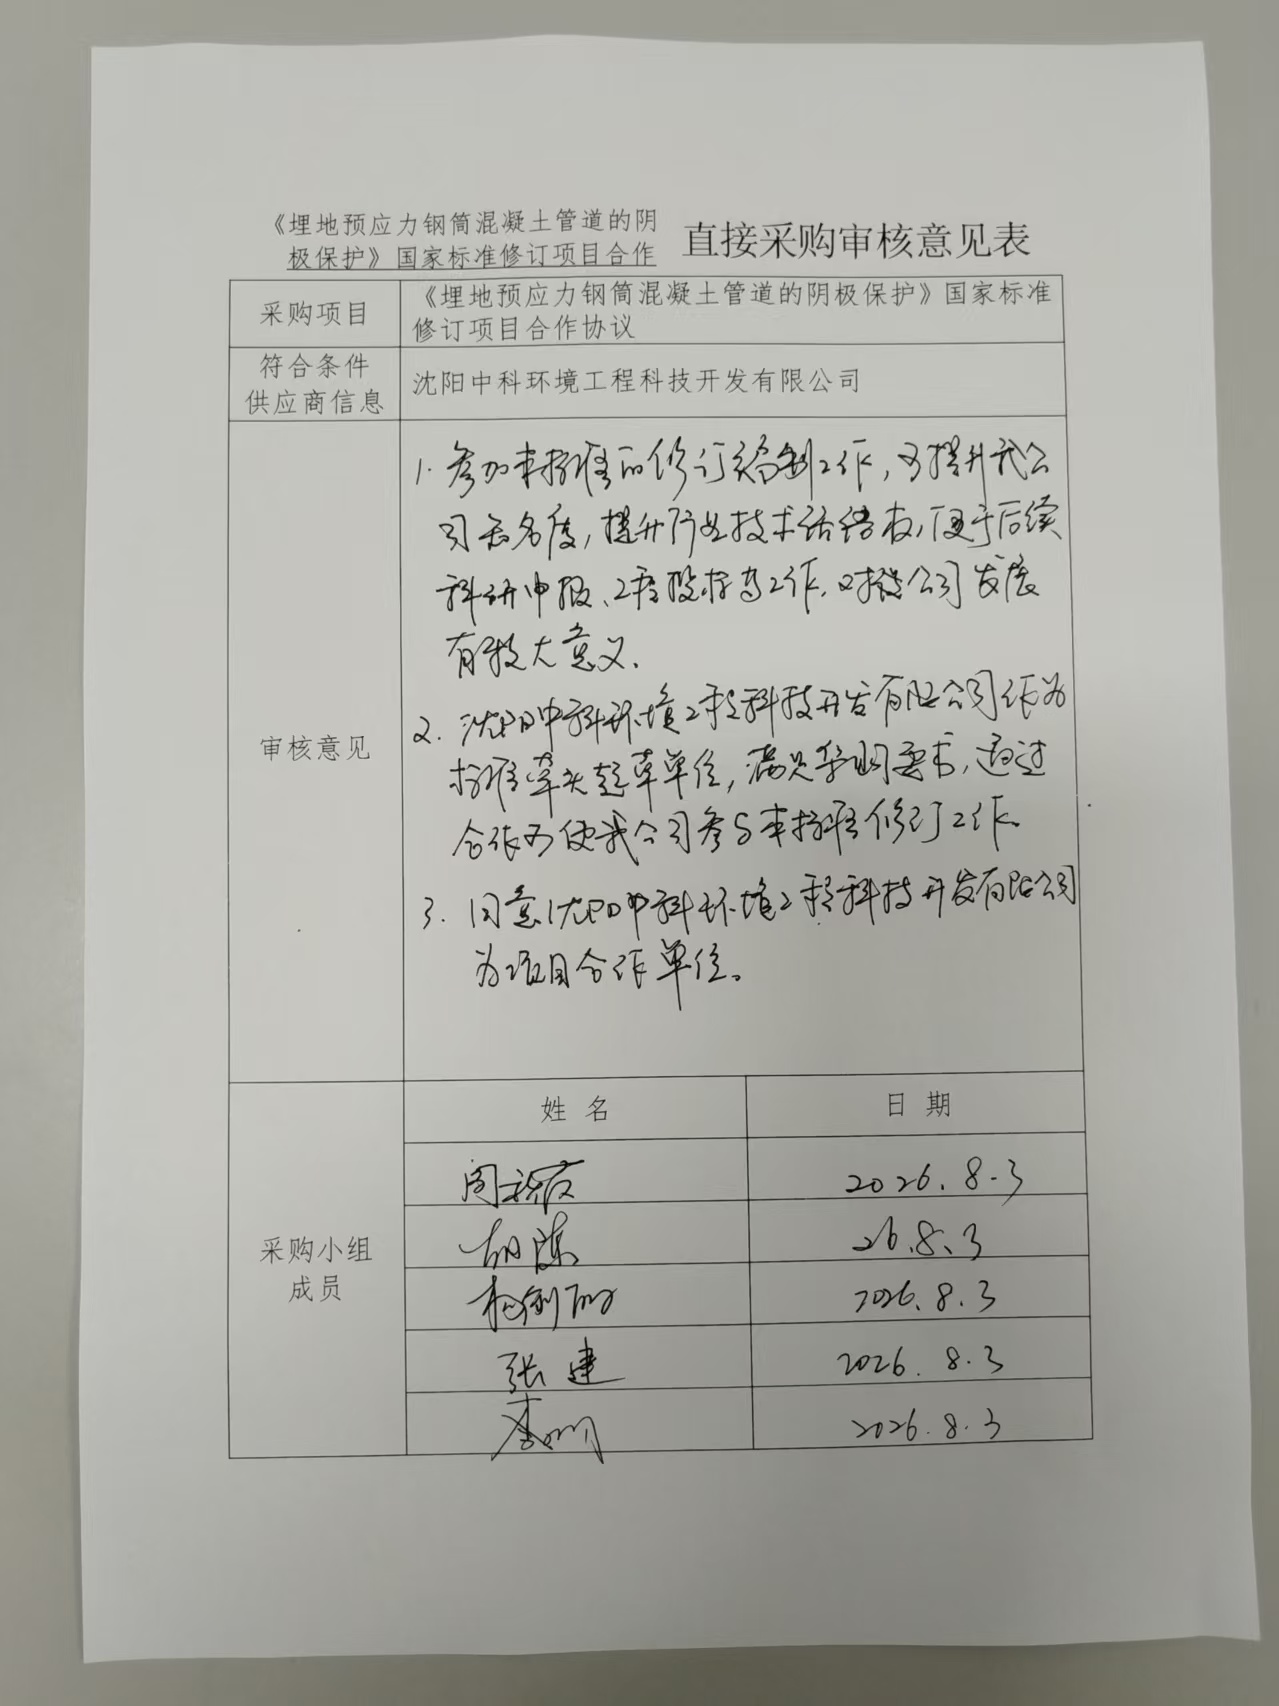 《埋地预应力钢筒混凝土管道的阴
极保护》国家标准修订项目合作
直接采购审核意见表
采购项目
《埋地预应力钢筒混凝土管道的阴极保护》国家标准
修订项目合作协议
符合条件
供应商信息
沈阳中科环境工程科技开发有限公司
审核意见
1. 参加本标准的修订编制工作,可提升我公
司知名度,提升行业技术话语权,便于后续
科研申报、工程投标等工作,对我公司发展
有较大意义.
2. 沈阳中科环境工程科技开发有限公司作为
标准牵头起草单位,满足采购要求,通过
合作可使我公司参与本标准修订工作。
3. 同意沈阳中科环境工程科技开发有限公司
为项目合作单位。
采购小组
成员
姓 名
日 期
2026.8.3
胡陈
26.8.3
2026.8.3
张建
2026.8.3
李明
2026.8.3